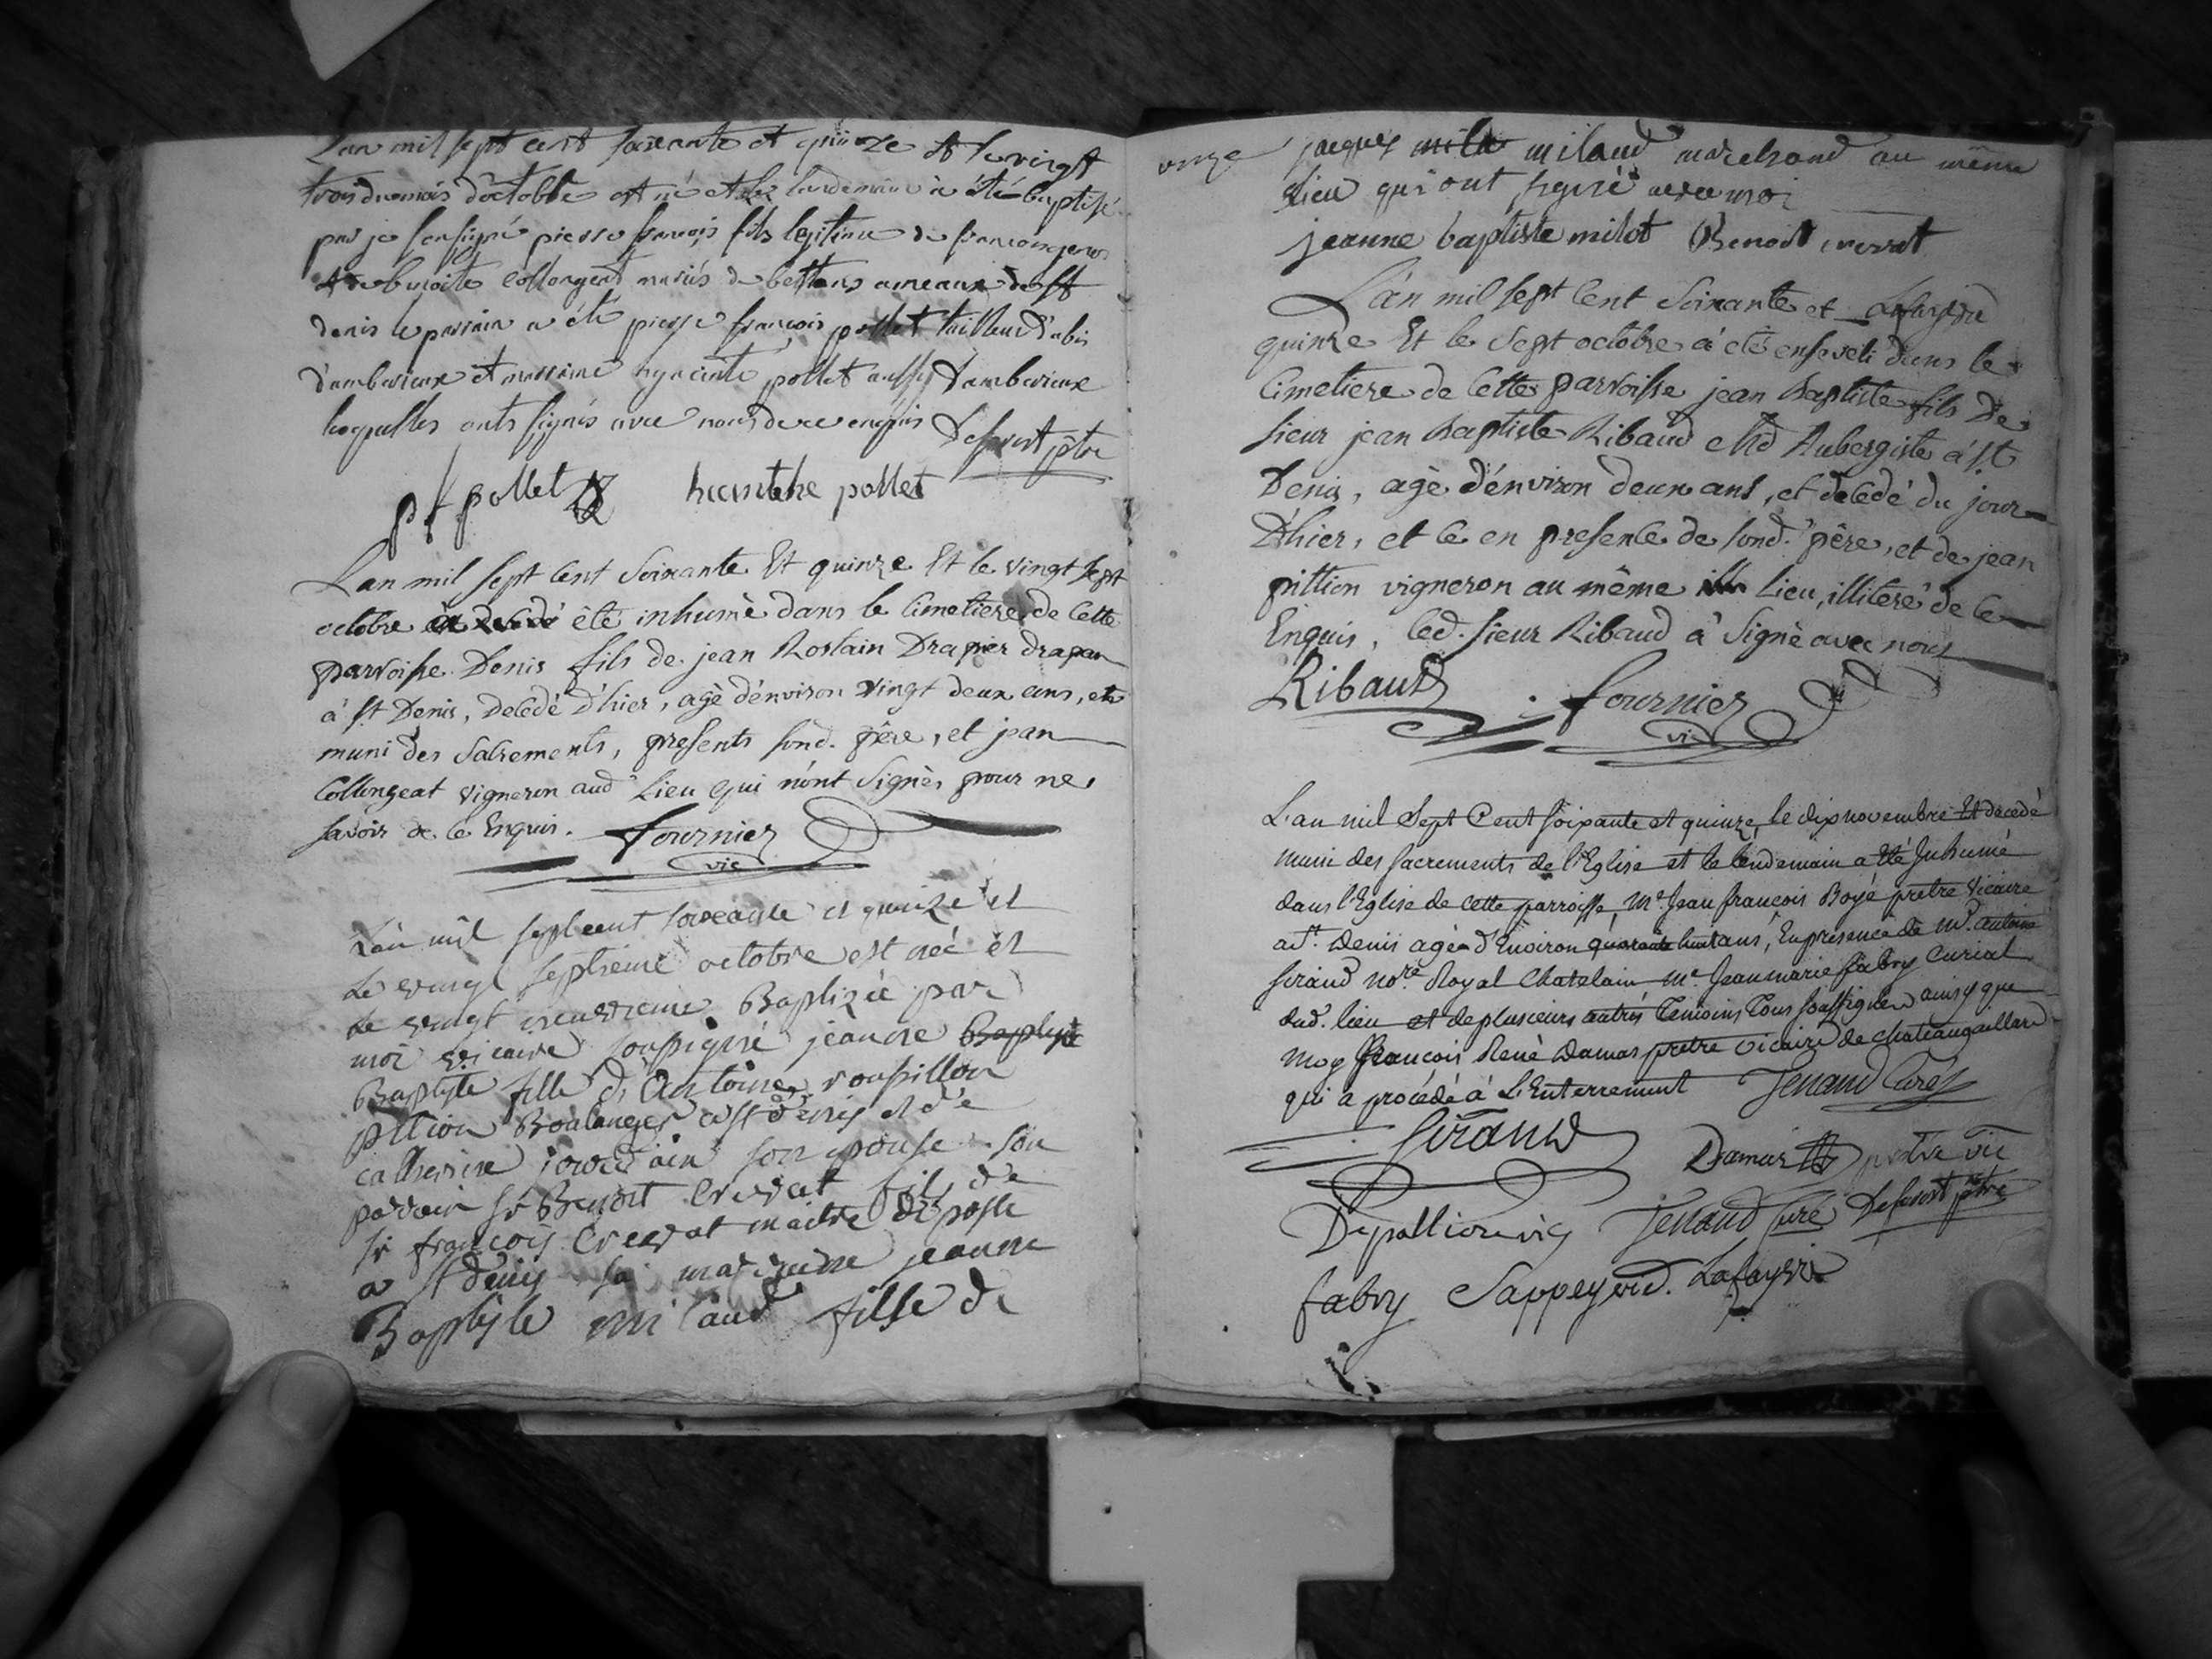 Lan mil sept cent soixante et quinze et le vingt
trois du mois doctobre est né et le lendemain à été baptisé
par je soussigné pierre françois fils legitime de
et de benoite collongeat mariés de bettans ameaux de st
denis le parrain a été pierre françois pollet tailleur d'abis
d'amberieux et marraine hyacinte pollet aussy d'amberieux
lesquelles onts signés avec nous de ce enquis Deforest ptre
pf pollet hiacinthe pollet
Lan mil sept Cent Soixante Et quinze Et le vingt sept
octobre été inhumè dans le Cimetiere de Cette
parroisse Denis fils de jean Rostain Drapier drapan
a' st Denis, Decedè D'hier, agè d'environ vingt deux ans, et
muni des Sacrements, presents sond. père, et jean
Collongeat vigneron aud' Lieu qui n'ont Signès pour ne
savoir de Ce Enquis. fournier
vic
L'an mil sept cent soixante et quinze et
Le vingt septieme octobre est née et
Le vingt neuvieme Baptizée par
moi vicaire soussigné jeanne Baptiste
Baptiste fille d'Antoine roussillon
pition Boulanger a st denis et de
catherine jourdain son epouse son
parrain sr Benoit Crevat fils de
sr françois Crevat maitre de poste
a st denis sa marraine jeanne
Baptiste milaud fille de
onze jacques mila milaud marchand au même
Lieu qui ont signé avec moi
jeanne baptiste milot Benoit crevat
L'an mil sept Cent Soixante et Lafayete
quinze Et le sept octobre a' etè enseveli dans le
Cimetiere de Cette parroisse jean Baptiste fils De
sieur jean Baptiste Ribaud chd Aubergiste a' st
Denis, agè d'environ deux ans, et decedé du jour
D'hier, et ce en presence de sond. père, et de jean
pittion vigneron au même Lieu, illiteré de Ce
Enquis, led. sieur Ribaud a' Signè avec nous
Ribaud fournier
vic
L'an mil Sept Cent soixante et quinze, le dix novembre Est décedé
muni des sacrements de l'Eglise et le lendemain a eté Inhumé
dans l'Eglise de cette parroisse, Me Jean françois Boyé prêtre Vicaire
a St. Denis agé d'Environ quarante huit ans, En présence de Mr. antoine
Sirand Nore. Royal Chatelain Me. Jean marie fabry Curial
dud. lieu et de plusieurs autres temoins tous soussignés ainsy que
moy françois René Damas prêtre vicaire de chateaugaillard
qui a procédé à L'Enterrement Jenand Curé
Sirand
Damas prêtre vic
Depallion vic Jenand Curé Deforest ptre
fabry Sappey vic. Lafayete